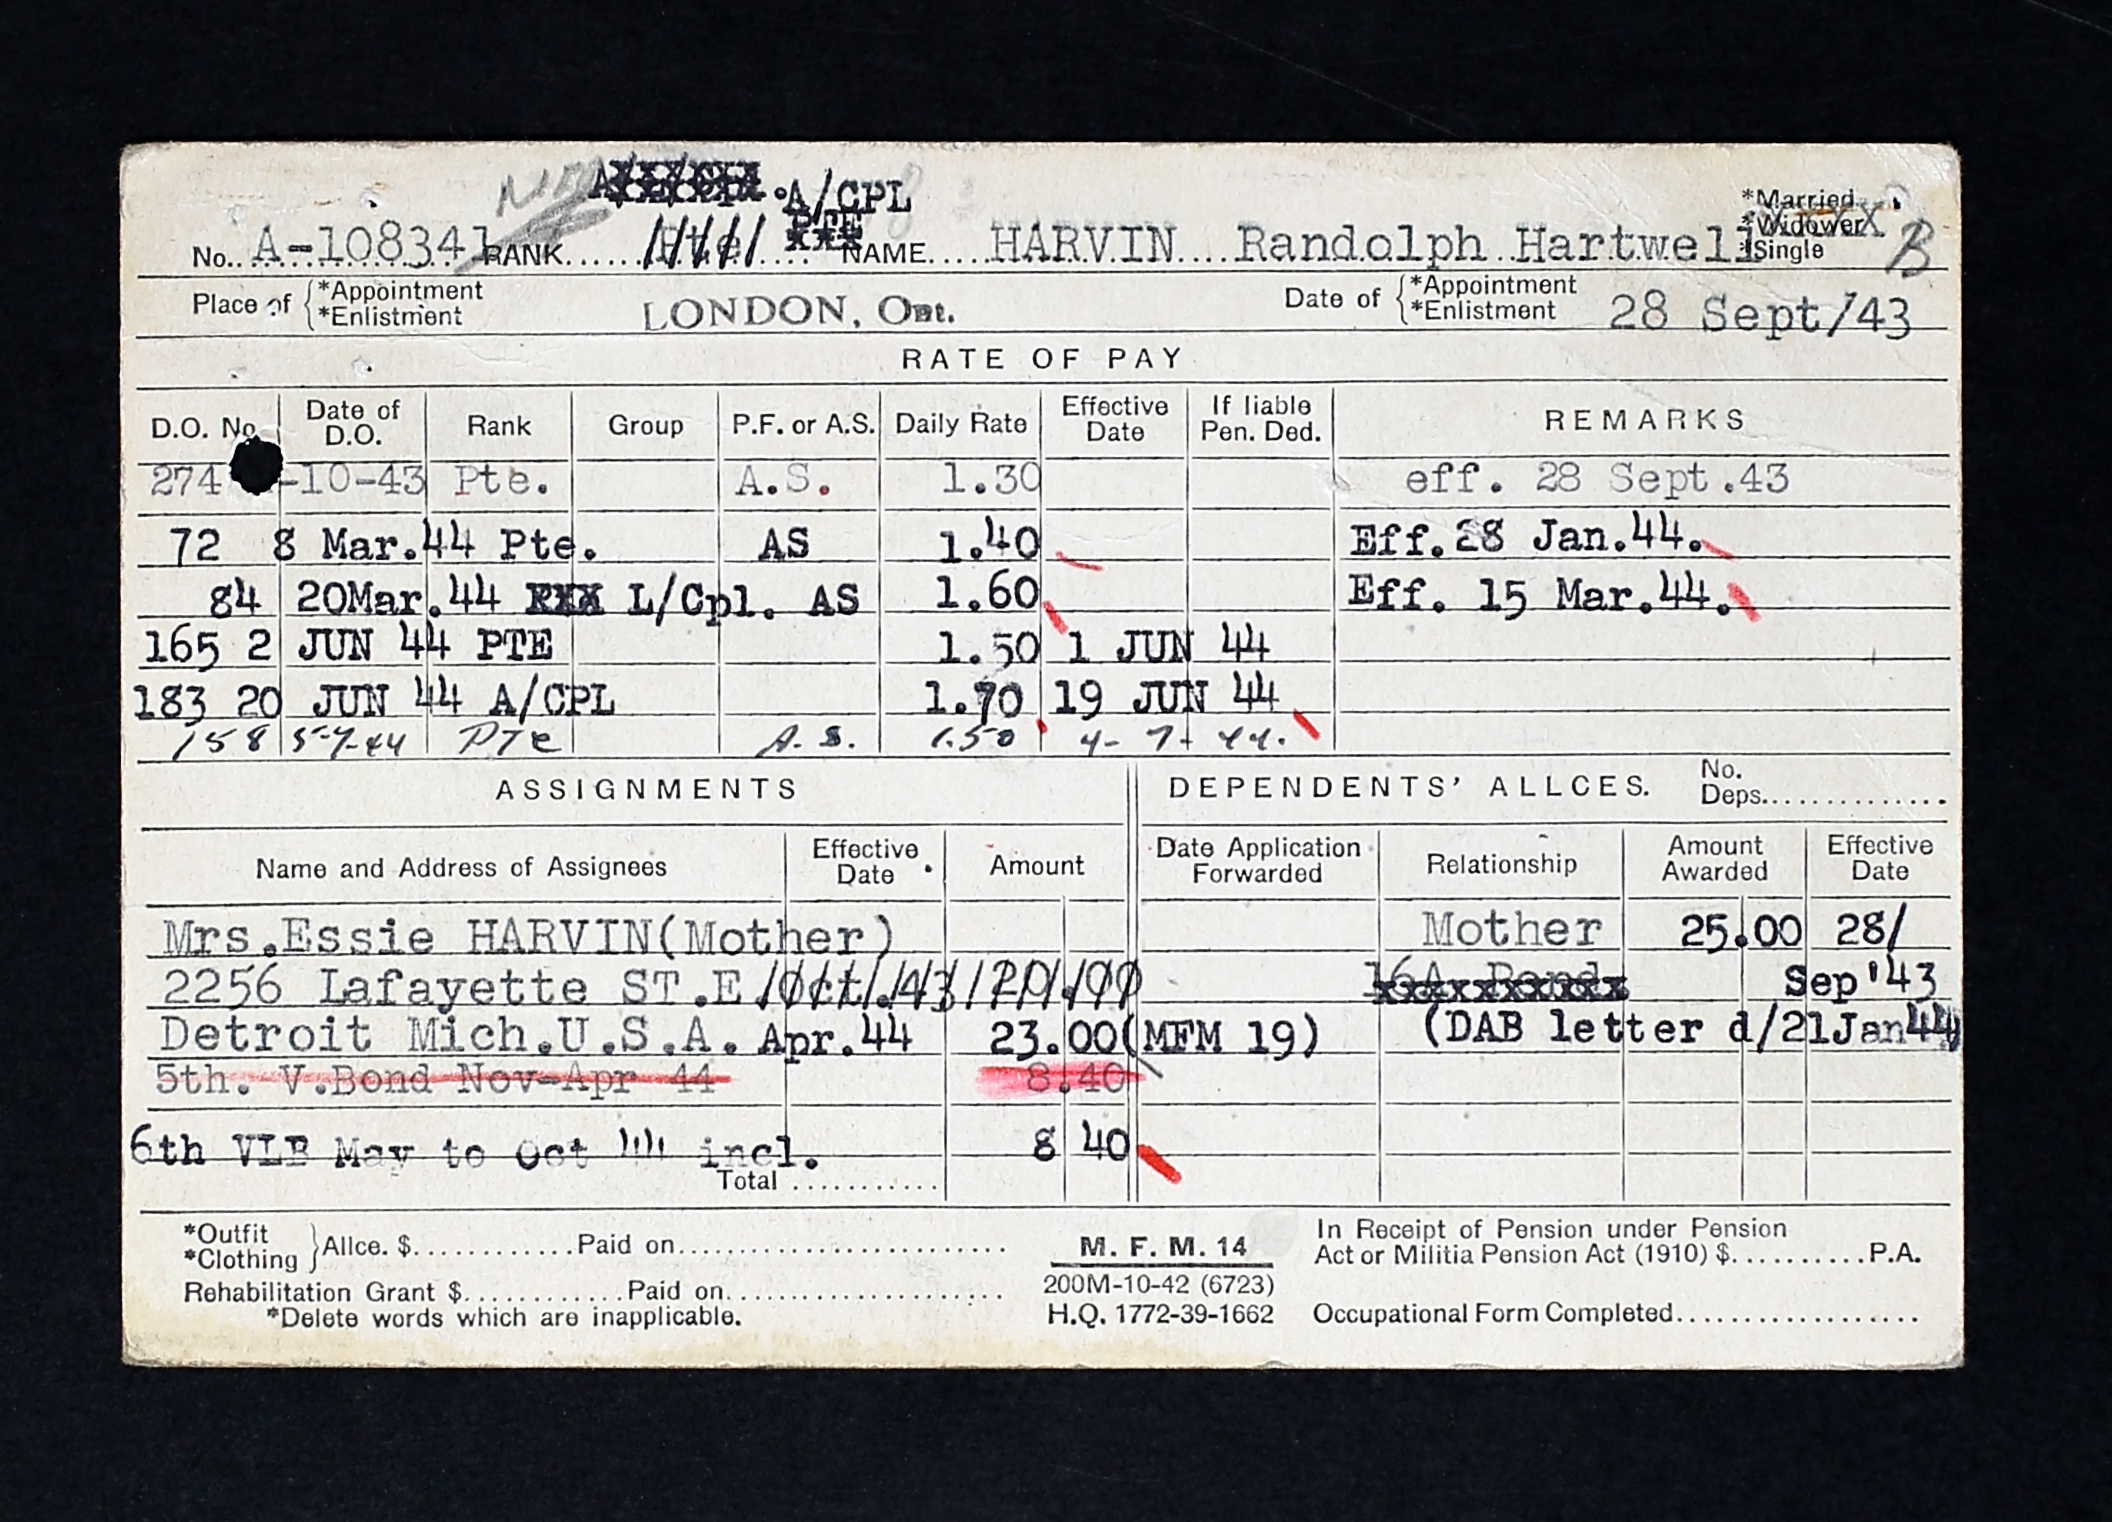 A/CPL
No. A-108341 RANK Pte NAME HARVIN Randolph Hartwell *Married *Widower *Single B
Place of { *Appointment *Enlistment LONDON, Ont. Date of { *Appointment *Enlistment 28 Sept/43
RATE OF PAY
D.O. No. Date of D.O. Rank Group P.F. or A.S. Daily Rate Effective Date If liable Pen. Ded. REMARKS
274 -10-43 Pte. A.S. 1.30 eff. 28 Sept.43
72 8 Mar.44 Pte. AS 1.40 Eff.28 Jan.44.
84 20Mar.44 L/Cpl. AS 1.60 Eff. 15 Mar.44.
165 2 JUN 44 PTE 1.50 1 JUN 44
183 20 JUN 44 A/CPL 1.70 19 JUN 44
158 5-7-44 Pte A.S. 1.50 4-7-44.
ASSIGNMENTS DEPENDENTS' ALLCES. No. Deps.
Name and Address of Assignees Effective Date Amount Date Application Forwarded Relationship Amount Awarded Effective Date
Mrs.Essie HARVIN(Mother) Mother 25.00 28/
2256 Lafayette ST.E. Oct.43 20.00 16A Bond Sep'43
Detroit Mich.U.S.A. Apr.44 23.00(MFM 19) (DAB letter d/21Jan44)
5th. V.Bond Nov-Apr 44 8.40
6th VLB May to Oct 44 incl. 8 40
Total
*Outfit *Clothing } Allce. $ Paid on M. F. M. 14 In Receipt of Pension under Pension
Act or Militia Pension Act (1910) $ P.A.
Rehabilitation Grant $ Paid on 200M-10-42 (6723)
*Delete words which are inapplicable. H.Q. 1772-39-1662 Occupational Form Completed